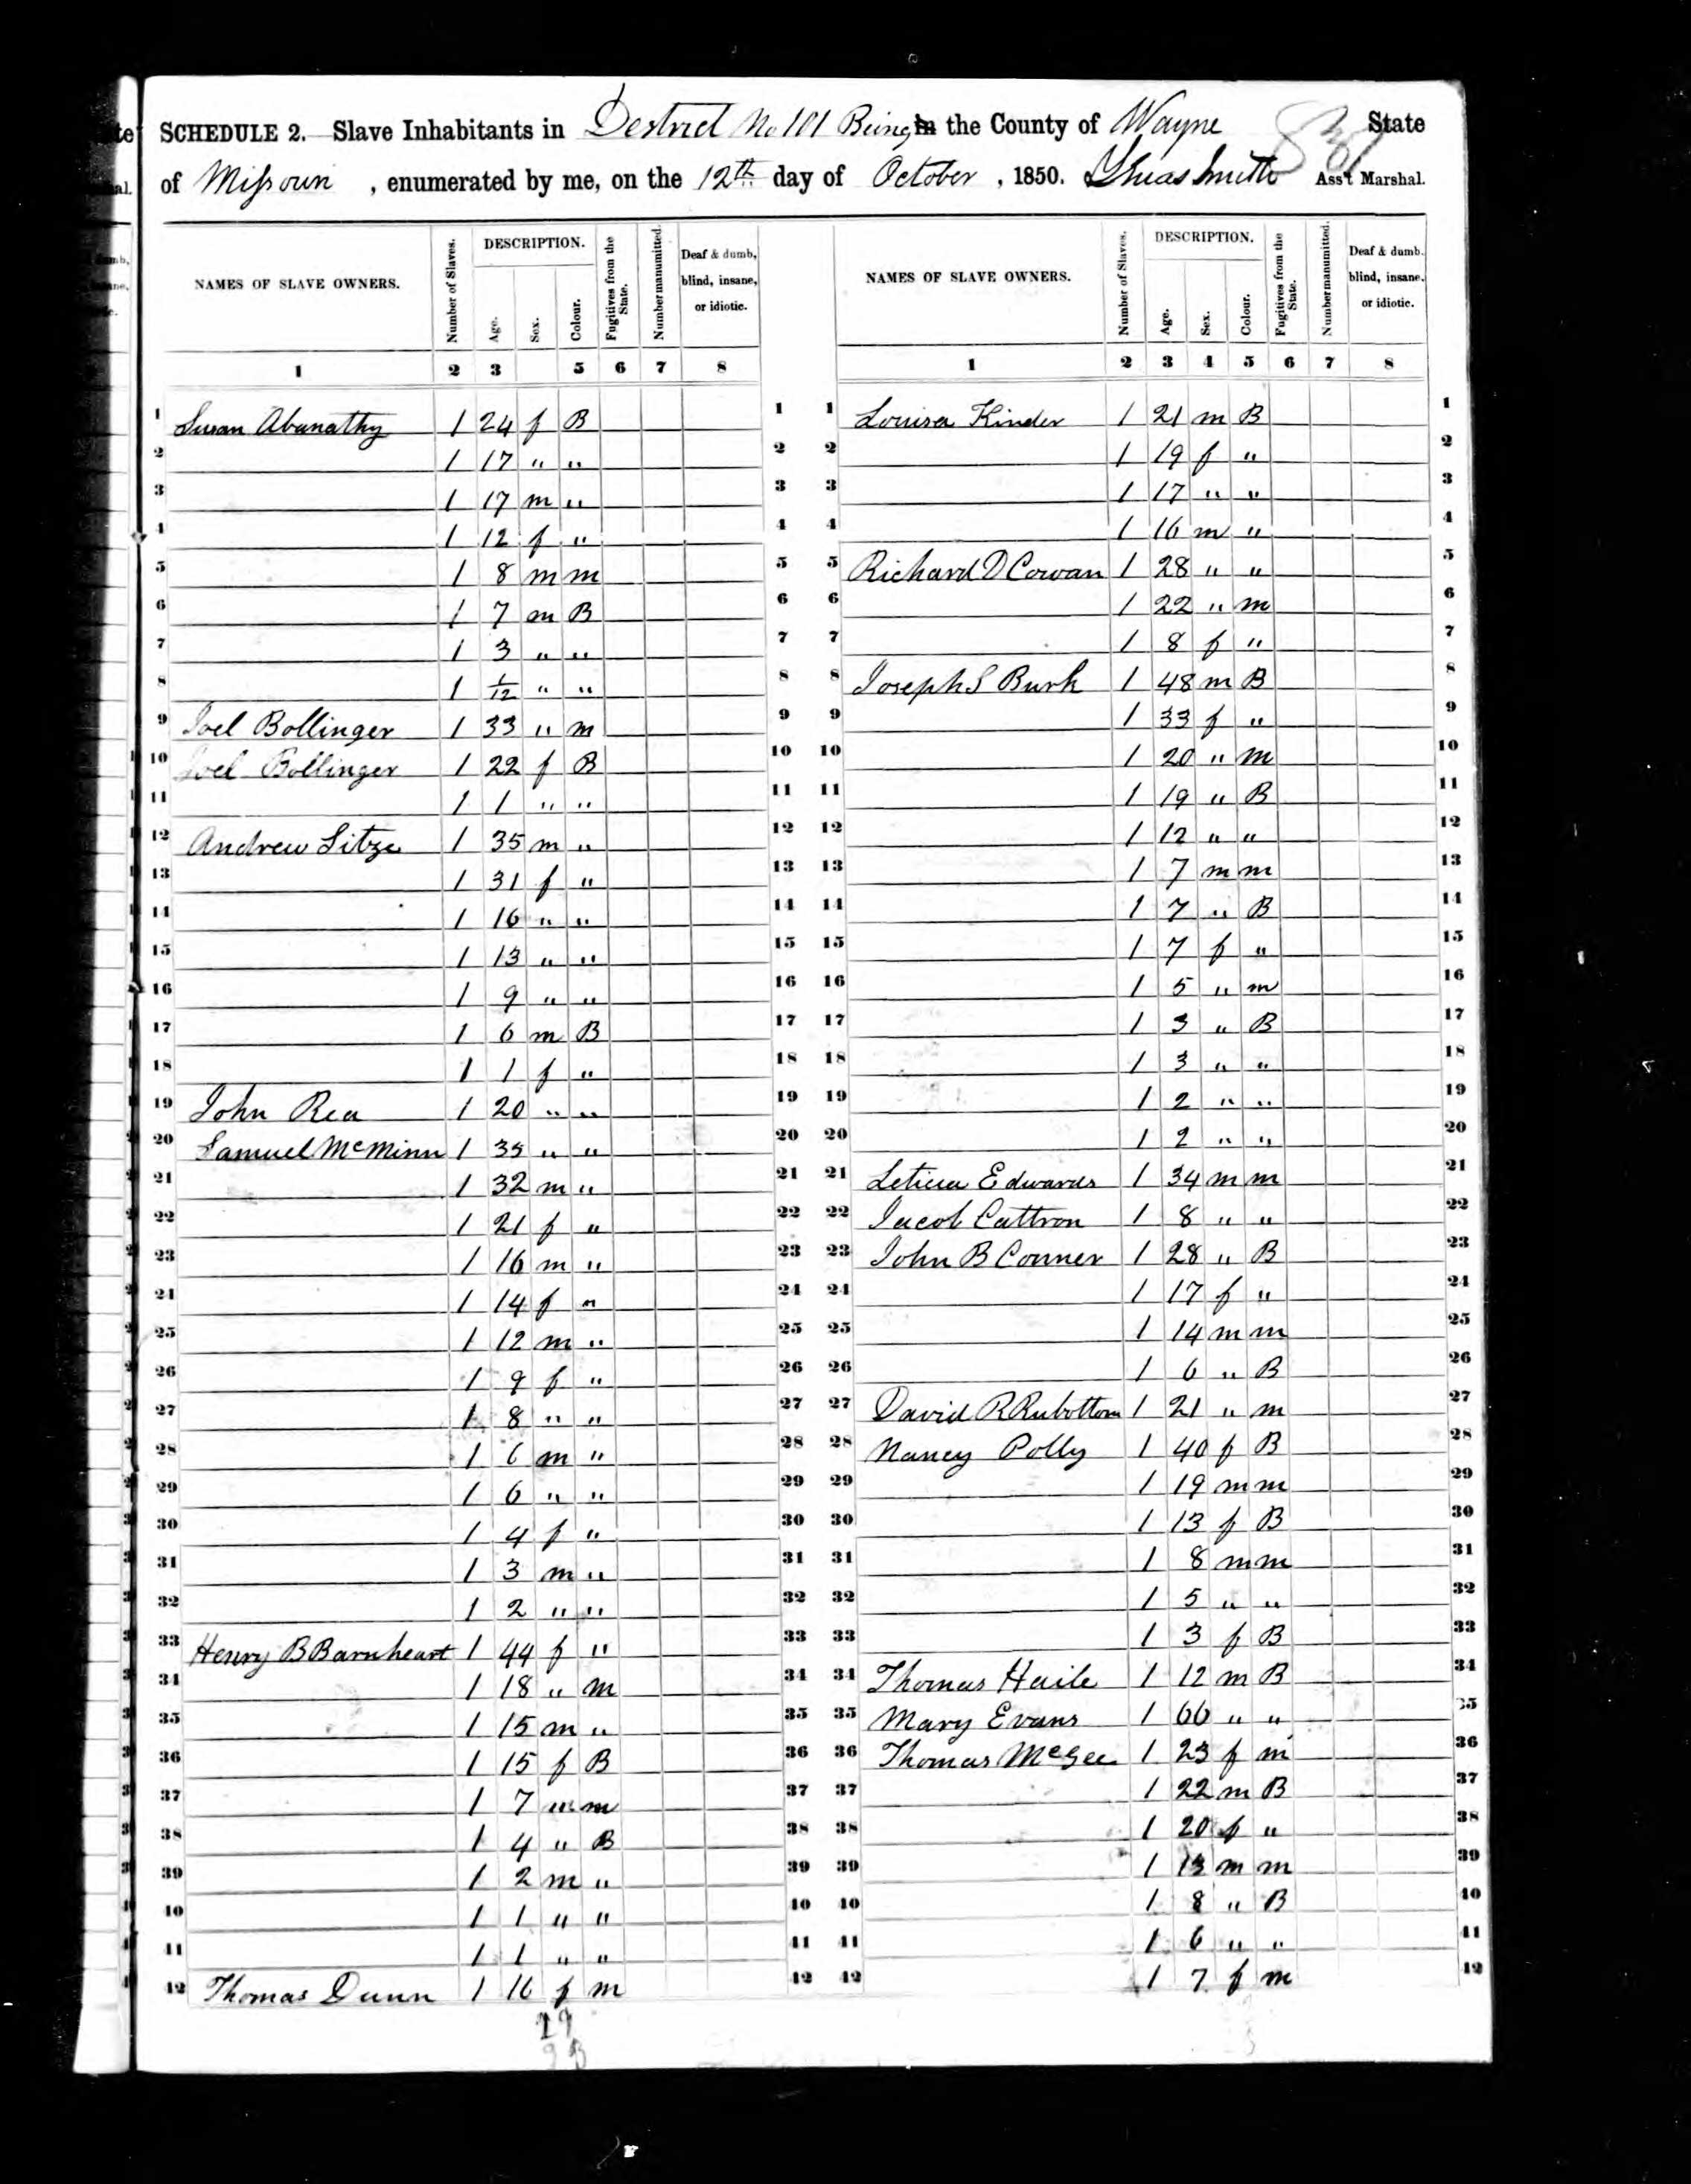 SCHEDULE 2. Slave Inhabitants in Destrict No 101 Being in the County of Wayne State
of Missouri, enumerated by me, on the 12th day of October, 1850. Smith Ass't Marshal.
NAMES OF SLAVE OWNERS. Number of Slaves. DESCRIPTION. Age. Sex. Colour. Fugitives from the State. Number manumitted. Deaf & dumb, blind, insane, or idiotic.
1 2 3 5 6 7 8
1 Susan Abanathy 1 24 f B 1
2 1 17 " " 2
3 1 17 m " 3
4 1 12 f " 4
5 1 8 m m 5
6 1 7 m B 6
7 1 3 " " 7
8 1 1/12 " " 8
9 Joel Bollinger 1 33 " m 9
10 Joel Bollinger 1 22 f B 10
11 1 1 " " 11
12 Andrew Sitze 1 35 m " 12
13 1 31 f " 13
14 1 16 " " 14
15 1 13 " " 15
16 1 9 " " 16
17 1 6 m B 17
18 1 1 f " 18
19 John Rea 1 20 " " 19
20 Samuel McMinn 1 35 " " 20
21 1 32 m " 21
22 1 21 f " 22
23 1 16 m " 23
24 1 14 f " 24
25 1 12 m " 25
26 1 9 f " 26
27 1 8 " " 27
28 1 6 m " 28
29 1 6 " " 29
30 1 4 f " 30
31 1 3 m " 31
32 1 2 " " 32
33 Henry B Barnheart 1 44 f " 33
34 1 18 " m 34
35 1 15 m " 35
36 1 15 f B 36
37 1 7 " m 37
38 1 4 " B 38
39 1 2 m " 39
40 1 1 " " 40
41 1 1 " " 41
42 Thomas Dunn 1 16 f m 42
NAMES OF SLAVE OWNERS. Number of Slaves. DESCRIPTION. Age. Sex. Colour. Fugitives from the State. Number manumitted. Deaf & dumb, blind, insane, or idiotic.
1 2 3 4 5 6 7 8
1 Louisa Kinder 1 21 m B 1
2 1 19 f " 2
3 1 17 " " 3
4 1 16 m " 4
5 Richard D Cowan 1 28 " " 5
6 1 22 " m 6
7 1 8 f " 7
8 Joseph S Burk 1 48 m B 8
9 1 33 f " 9
10 1 20 " m 10
11 1 19 " B 11
12 1 12 " " 12
13 1 7 m m 13
14 1 7 " B 14
15 1 7 f " 15
16 1 5 " m 16
17 1 3 " B 17
18 1 3 " " 18
19 1 2 " " 19
20 1 2 " " 20
21 Leticia Edwards 1 34 m m 21
22 Jacob Cattron 1 8 " " 22
23 John B Conner 1 28 " B 23
24 1 17 f " 24
25 1 14 m m 25
26 1 6 " B 26
27 David R Rubottom 1 21 " m 27
28 Nancy Polly 1 40 f B 28
29 1 19 m m 29
30 1 13 f B 30
31 1 8 m m 31
32 1 5 " " 32
33 1 3 f B 33
34 Thomas Haile 1 12 m B 34
35 Mary Evans 1 66 " " 35
36 Thomas McGee 1 23 f m 36
37 1 22 m B 37
38 1 20 f " 38
39 1 13 m m 39
40 1 8 " B 40
41 1 6 " " 41
42 1 7 f m 42